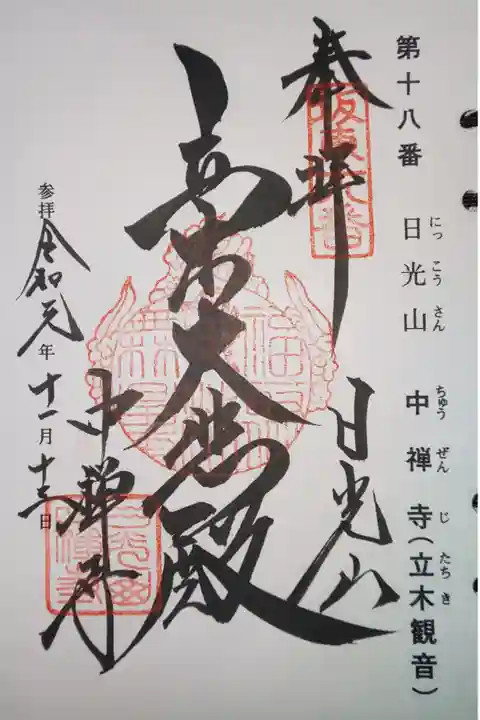 第十八番 日光山 中禅寺(立木観音)
にっこうさん ちゅうぜんじ たちき
奉拝
坂東十八番
日光山
立木大悲殿
中禅寺
参拝 令和元年十一月十三日